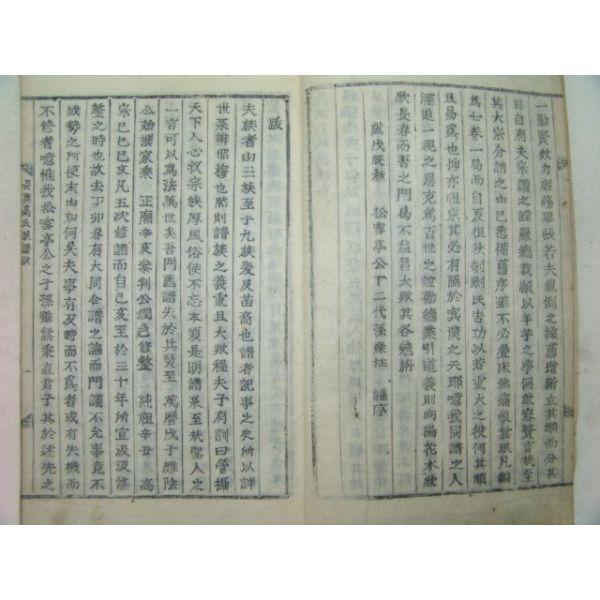 一動賢効力經務畢若夫倒之據舊增新立其類而分其
目自有夫宗譜之證嚴總裁以羊芋之學何敢容贅言哉至
其大宗分譜之由已悉備舊序矣不必疊床然痛恨無珉凡譜
爲七卷一局而自夏徂秋剞劂氏告功以若重大之役何其順
且易爲也抑亦祖宗其必有隲於冥漠之天耶噫我同譜之人
溯追一視之恩克篤百世之誼勸德業引道義則向陽花木欣
欣長春而吾之門爲不益昌大歟其各勉旃
歲戊辰秋 松亭公十二代孫 謹序
跋
夫族者由三族至于九族爰及苗裔也譜者記事之史所以詳
世系辨昭穆也然則譜族之義重且大歟程夫子有訓曰管攝
天下人心收宗族厚風俗使不忘本須是明譜系至哉聖人之
一言可以爲法萬世矣吾門舊譜失於兵燹至 萬曆戊子雁陰
公始撰家乘 正廟辛亥叅判公潤色修整 純祖辛丑 高
宗己巳己亥凡五次修譜而自己亥至於三十年所宜汲汲修
整之時也故去丁卯春有大同合譜之論而門議不允事竟不
成勢之所使末由如何矣夫事有及時而不爲者或有失機而
不修者噫惟我松亭公之子孫雖無秉直君子其於述先之
長興高氏族譜跋 一